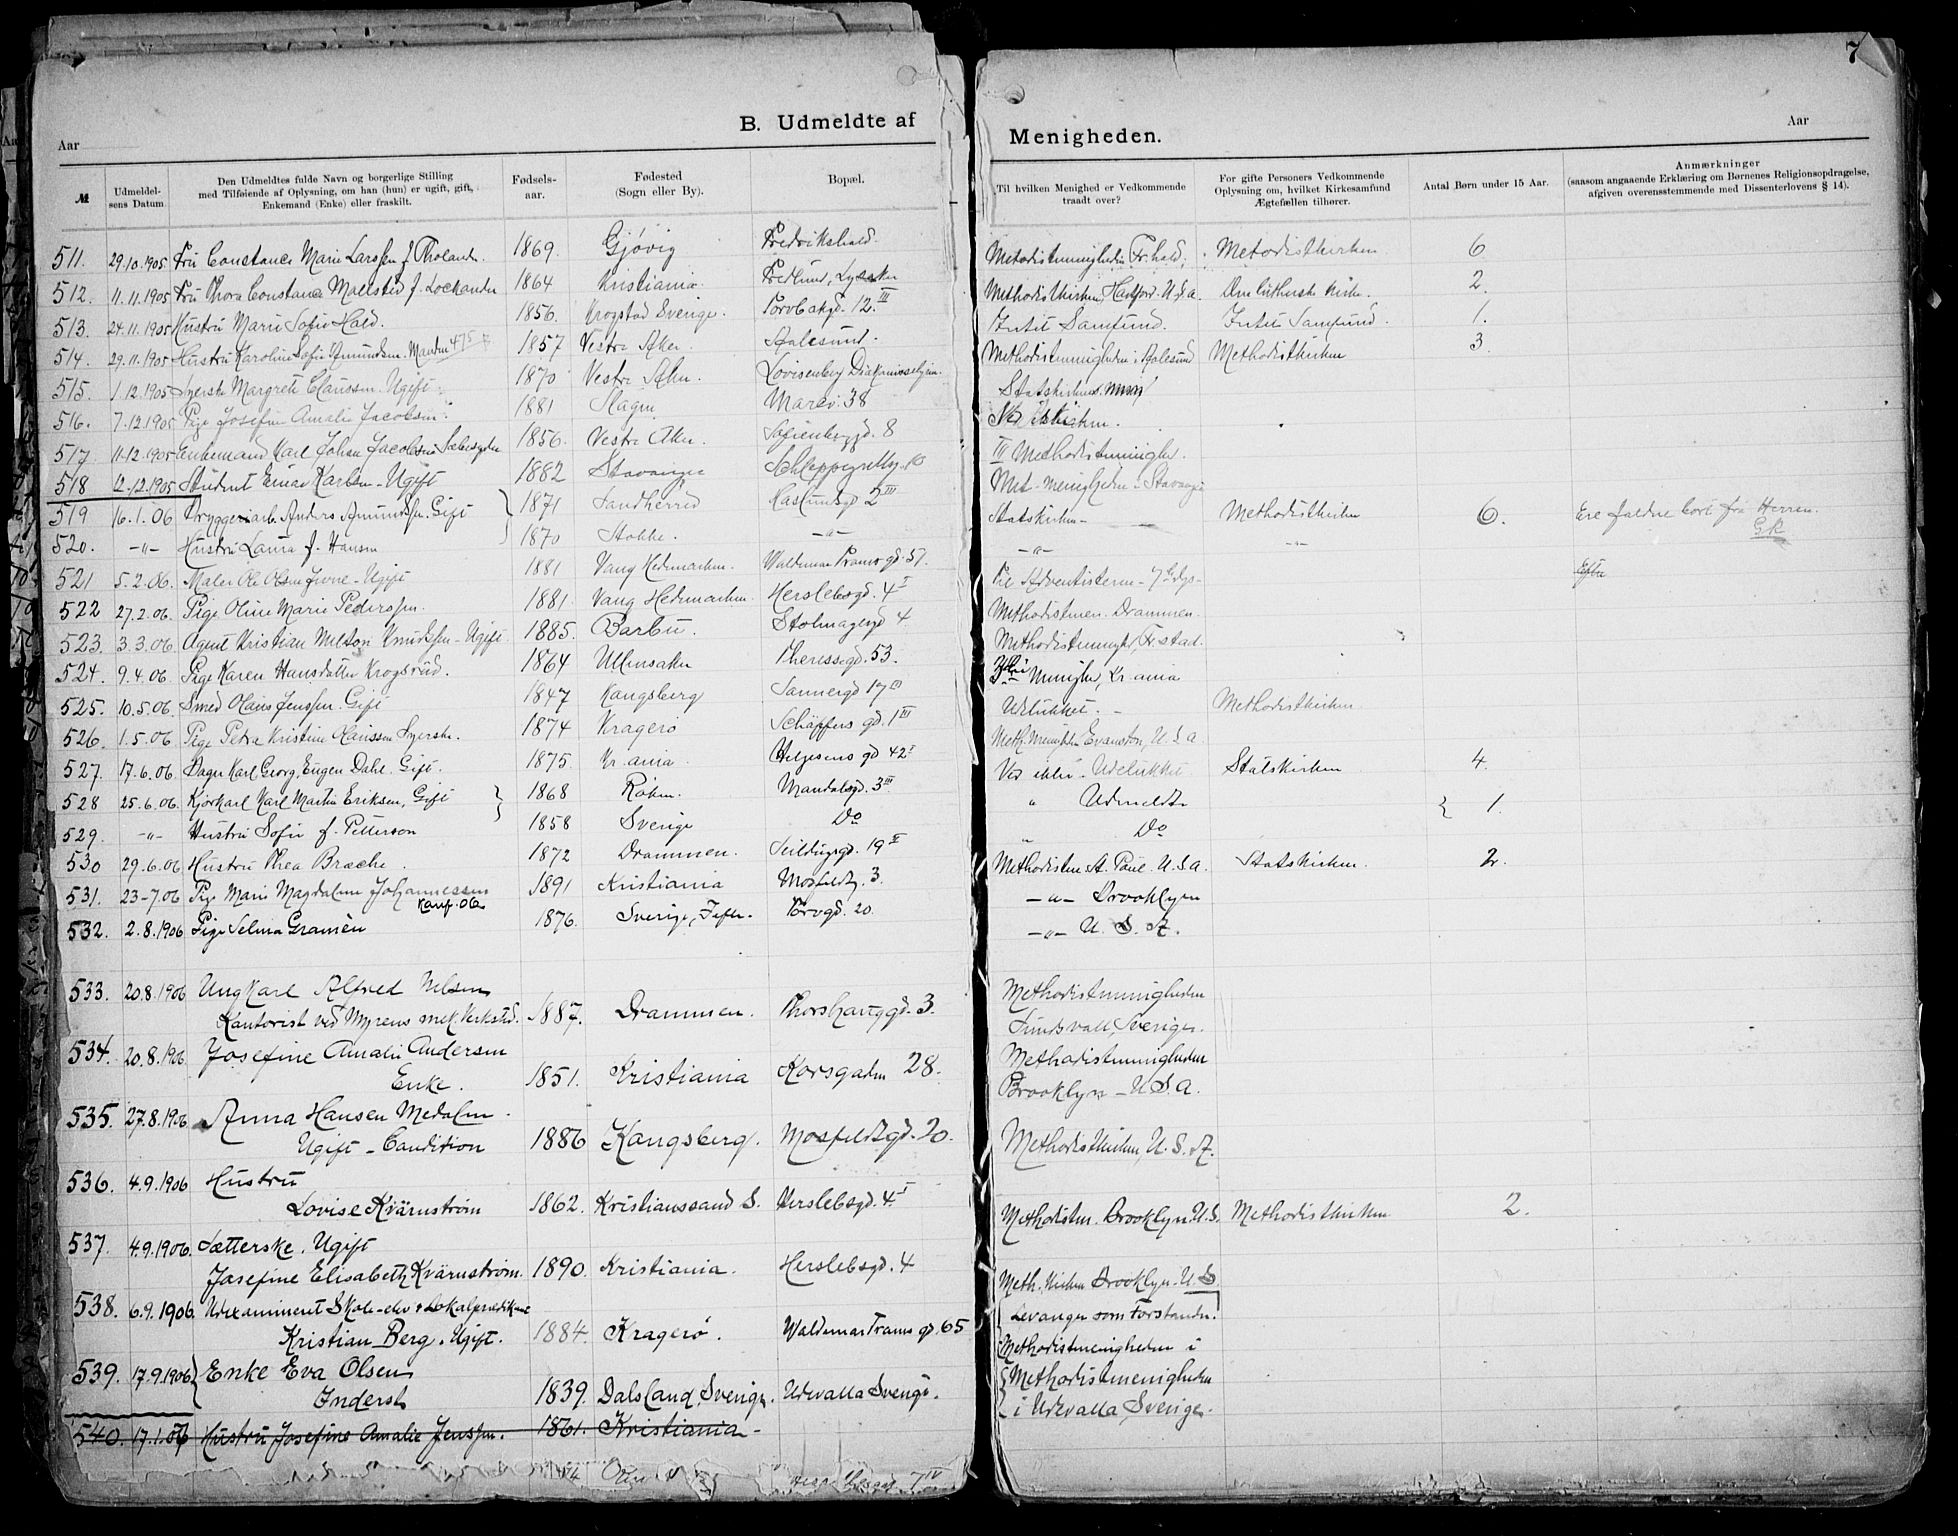 7
B. Udmeldte af Menigheden.
Aar
Aar
№
Udmeldel-
sens Datum
Den Udmeldtes fulde Navn og borgerlige Stilling
med Tilføiende af Oplysning, om han (hun) er ugift, gift,
Enkemand (Enke) eller fraskilt.
Fødsels-
aar.
Fødested
(Sogn eller By).
Bopæl.
Til hvilken Menighed er Vedkommende
traadt over?
For gifte Personers Vedkommende
Oplysning om, hvilket Kirkesamfund
Ægtefællen tilhører.
Antal Børn under 15 Aar.
Anmærkninger
(saasom angaaende Erklæring om Børnenes Religionsopdragelse,
afgiven overensstemmende med Dissenterlovens § 14).
511. 29.10.1905 Fru Constance Marie Larssen f. Tholander. 1869. Gjøvig Fredrikshald. Metodistmenigheden Fr.hald. Metodistkirken 6
512. 11.11.1905 Fru Thora Constance f. 1864 Kristiania. Lysaker Methodistkirken, U.S.A. Den lutherske Kirke. 2.
513. 24.11.1905 Hustru Marie Sofie Hald. 1856. Krogstad Sverige. 12.III Intet Samfund. Intet Samfund. 1.
514. 29.11.1905 Hustru Karoline Sofie Amundsen. 475 1857 Vestre Aker. Aalesund. Methodistmenigheden i Aalesund Methodistkirken 3.
515. 1.12.1905 Syerske Margrete Claussen. Ugift. 1870 Vestre Aker. Lovisenberg Statskirken
516. 7.12.1905 Pige Josefine Amalie Jacobsen. 1881 Slagen Marev. 38
517. 11.12.1905 Enkemand Karl Johan Jacobsen 1856. Vestre Aker. Sofienbergd. 8 III Methodistmenigh.
518 12.12.1905 Student Einar Karlsen - Ugift 1882 Stavanger Met-menigheden i Stavanger
519 16.1.06 Bryggeriarb. Anders Amundsen. Gift 1871 Sandherred Haslundsgd 2 III Statskirken - Methodistkirken 6. Ere faldne bort fra Herren.
G.K.
520. -"- Hustru Laura f. Hansen 1870 Stokke. -"- -"- -"-
521 5.2.06. Maler Ole Olsen - Ugift 1881 Vang Hedemarken. Waldemar Thranesgd. 51. Til Adventisterne - 7de Dgs-
522 27.2.06. Pige Oline Marie Pederssen. 1881. Vang Hedemarken. Herslebsgd. 4 I Methodistmen. Drammen.
523. 3.3.06. Agent Kristian Knudssen - Ugift 1885. Barbu. Stolmagergd 4 Methodistmenigh, Fr.stad.
524. 9.4.06. Pige Karen Hansdatter Krogsrud. 1864 Ullensaker Theresegd. 53. Menighed, Kr.ania
525. 10.5.06. Smed Olaus Jenssen. Gift 1847 Kongsberg Sannergd 17 III Udelukket. - Methodistkirken
526. 1.5.06. Pige Petra Kristine Syerske. 1874 Kragerø Schaffersgd. 1 III Meth. Menigheden Evanston, U.S.A.
527. 17.6.06. Bager Karl Georg Eugen Dahl. Gift. 1875. Kr.ania. Helgesens gd 42 I Udelukket. Statskirken 4.
528 25.6.06. Kjørkarl Karl Martin Eriksen, Gift 1868 Røken. Mandalsgd. 3 III " Udmeldte 1.
529. -"- Hustru Sofie f. Petterson 1858 Sverige Do " Do
530 29.6.06 Hustru Thea Brache. 1872 Drammen. Seildugsgd. 19 II Methodistm. St. Paul U.S.A. Statskirken. 2.
531. 23-7.06 Pige Marie Magdalene Johannessen 1891 Kristiania Mosfeldtg. 3. -"- Brooklyn
Konf. 06.
532. 2.8.1906 Pige Selma Gramén 1876. Sverige, Torvgd. 20. -"- U.S.A.
533. 20.8.1906 Ungkarl Alfred Nelsen Methodistmenigheden
Kontorist ved Myrens mek Verksted. 1887. Drammen. Thorshauggd. 3. Sundsvall, Sverige.
534. 20.8.1906 Josefine Amalie Andersen Methodistmenigheden
Enke. 1851. Kristiania Korsgaden 28. Brooklyn - U.S.A.
535. 27.8.1906 Anna Hansen Medalen.
Ugift - Condition 1886 Kongsberg. Mosfeldtgd. 20. Methodistkirken, U.S.A.
536. 4.9.1906 Hustru
Lovise Kvärnström 1862. Kristianssand S. Herslebsgd. 4.I Methodistm. Brooklyn. U.S. Methodistkirken 2.
537. 4.9.1906. Sætterske. Ugift
Josefine Elisabeth Kvärnström. 1890. Kristiania. Herslebsgd. 4 Meth. Kirken Brooklyn. U.S.
538. 6.9.1906. Udexamineret Skole-elev & Lokalprædikant Levanger som Forstander.
Kristian Berg. Ugift. 1884. Kragerø. Waldemar Tranes gd. 65 Methodistmenigheden i
539. 17.9.1906 Enke Eva Olsen Methodistmenigheden
Inderst 1839. Dalsland, Sverige. Udevalla Sverige. i Udevalla, Sverige.
540. 17.1.07 Hustru Josefine Amalie Jenssen. 1861. Kristiania -
7 IV